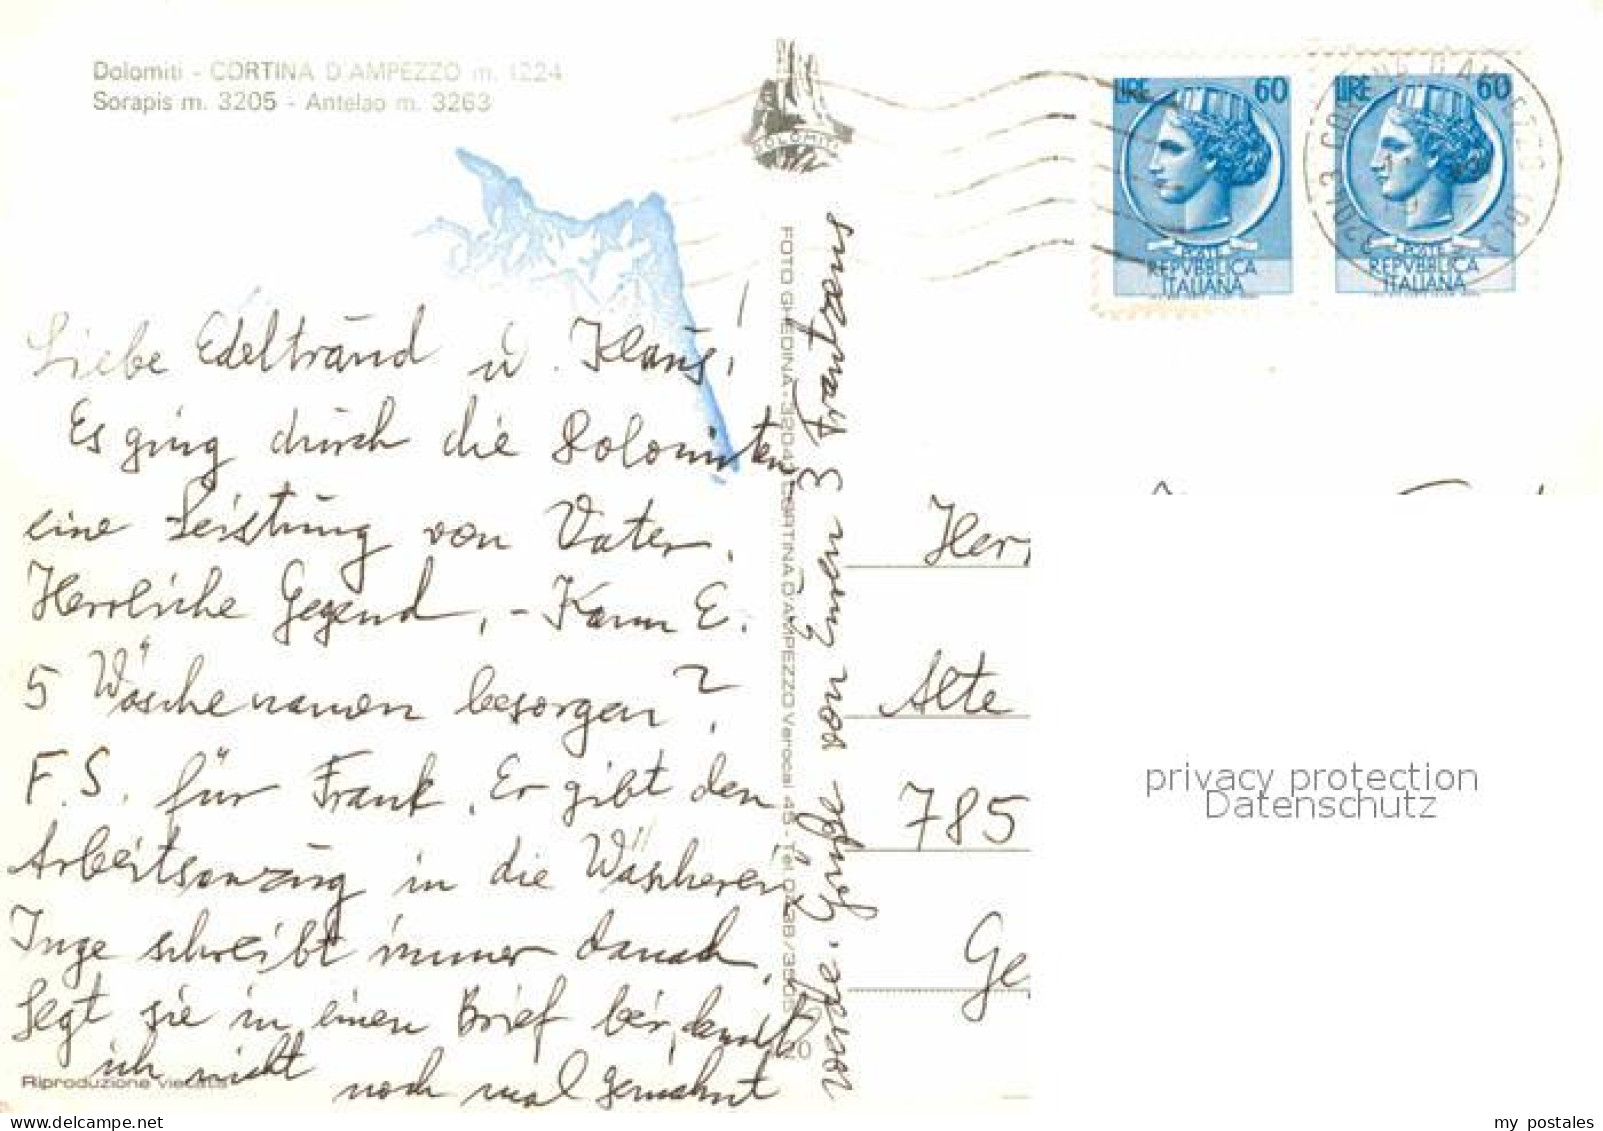 Dolomiti - CORTINA D'AMPEZZO m. 1224
Sorapis m. 3205 - Antelao m. 3263
DOLOMITI
LIRE 60
POSTE
REPVBBLICA
ITALIANA
LIRE 60
POSTE
REPVBBLICA
ITALIANA
Liebe Edeltraud u. Klaus!
Es ging durch die Dolomiten
eine Leistung von Vater.
Herrliche Gegend, - Kann E.
5 Wäschenamen besorgen?
F. S. für Frank. Er gibt den
Arbeitsanzug in die Wäscherei
Inge schreibt immer danach,
legt sie in einen Brief bei, damit
ich nicht noch mal gemahnt
werde. Grüße von Euren 3 Frantzens
FOTO GHEDINA - 32043 CORTINA D'AMPEZZO
Riproduzione vietata
Herr
Alte
785
Ge
privacy protection
Datenschutz
my postales